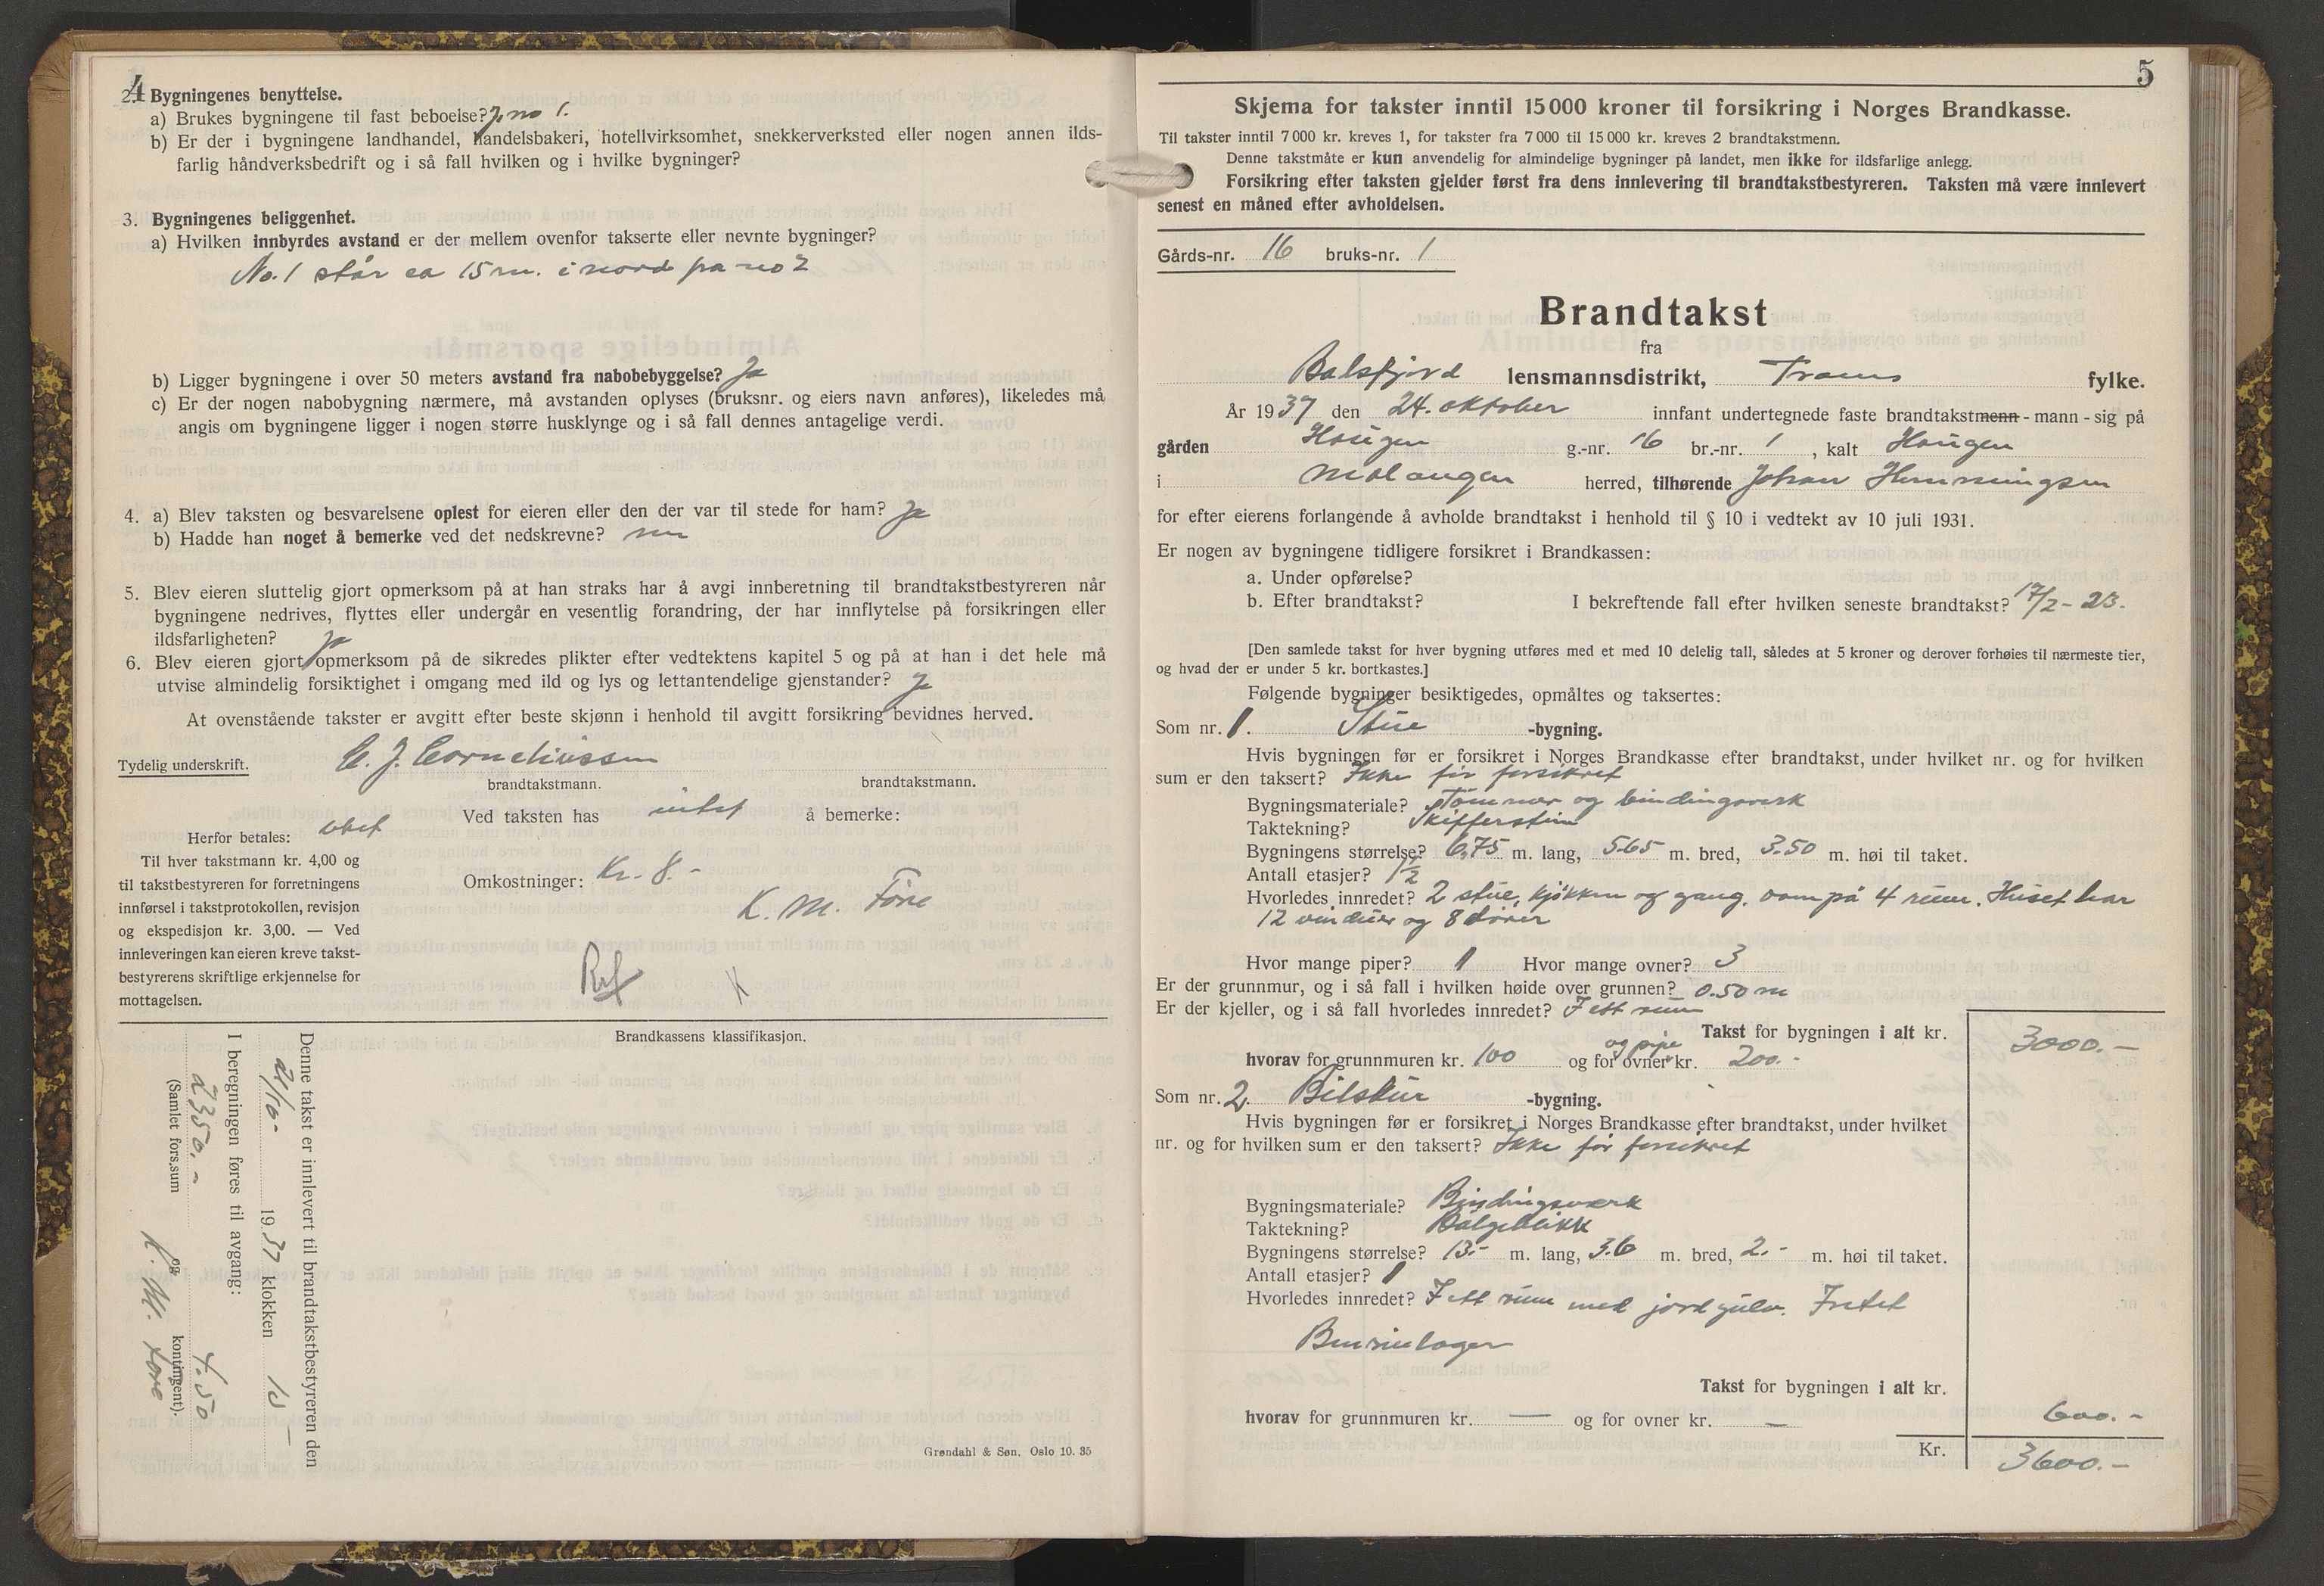 4
2. Bygningenes benyttelse.
a) Brukes bygningene til fast beboelse? Ja no 1.
b) Er der i bygningene landhandel, handelsbakeri, hotellvirksomhet, snekkerverksted eller nogen annen ilds-
farlig håndverksbedrift og i så fall hvilken og i hvilke bygninger?
3. Bygningenes beliggenhet.
a) Hvilken innbyrdes avstand er der mellem ovenfor takserte eller nevnte bygninger?
No. 1 står ca 15 m. i nord fra no 2
b) Ligger bygningene i over 50 meters avstand fra nabobebyggelse? Ja
c) Er der nogen nabobygning nærmere, må avstanden oplyses (bruksnr. og eiers navn anføres), likeledes må
angis om bygningene ligger i nogen større husklynge og i så fall dennes antagelige verdi.
4. a) Blev taksten og besvarelsene oplest for eieren eller den der var til stede for ham? Ja
b) Hadde han noget å bemerke ved det nedskrevne? nei
5. Blev eieren sluttelig gjort opmerksom på at han straks har å avgi innberetning til brandtakstbestyreren når
bygningene nedrives, flyttes eller undergår en vesentlig forandring, der har innflytelse på forsikringen eller
ildsfarligheten? Ja
6. Blev eieren gjort opmerksom på de sikredes plikter efter vedtektens kapitel 5 og på at han i det hele må
utvise almindelig forsiktighet i omgang med ild og lys og lettantendelige gjenstander? Ja
At ovenstående takster er avgitt efter beste skjønn i henhold til avgitt forsikring bevidnes herved.
Tydelig underskrift. C. J. Corneliussen
brandtakstmann. brandtakstmann.
Ved taksten has intet å bemerke:
Herfor betales:
Til hver takstmann kr. 4,00 og
til takstbestyreren for forretningens
innførsel i takstprotokollen, revisjon
og ekspedisjon kr. 3,00. — Ved
innleveringen kan eieren kreve takst-
bestyrerens skriftlige erkjennelse for
mottagelsen.
Omkostninger: Kr. 8.-
K. M. Føre
Ref
Brandkassens klassifikasjon.
Denne takst er innlevert til brandtakstbestyreren den
21/10- 1937 klokken 10
I beregningen føres til avgang:
2350.- og 4.50
(Samlet fors.sum kontingent).
K. M. Føre
Grøndahl & Søn, Oslo 10. 35
5
Skjema for takster inntil 15 000 kroner til forsikring i Norges Brandkasse.
Til takster inntil 7 000 kr. kreves 1, for takster fra 7 000 til 15 000 kr. kreves 2 brandtakstmenn.
Denne takstmåte er kun anvendelig for almindelige bygninger på landet, men ikke for ildsfarlige anlegg.
Forsikring efter taksten gjelder først fra dens innlevering til brandtakstbestyreren. Taksten må være innlevert
senest en måned efter avholdelsen.
Gårds-nr. 16 bruks-nr. 1
Brandtakst
fra
Balsfjord lensmannsdistrikt, Troms fylke.
År 1937 den 24. oktober innfant undertegnede faste brandtakstmenn - mann - sig på
gården Haugen g.-nr. 16 br.-nr. 1, kalt Haugen
i Malangen herred, tilhørende Johan Henningsen
for efter eierens forlangende å avholde brandtakst i henhold til § 10 i vedtekt av 10 juli 1931.
Er nogen av bygningene tidligere forsikret i Brandkassen:
a. Under opførelse?
b. Efter brandtakst? I bekreftende fall efter hvilken seneste brandtakst? 17/2 - 23.
[Den samlede takst for hver bygning utføres med et med 10 delelig tall, således at 5 kroner og derover forhøies til nærmeste tier,
og hvad der er under 5 kr. bortkastes.]
Følgende bygninger besiktigedes, opmåltes og taksertes:
Som nr. 1. Stue -bygning.
Hvis bygningen før er forsikret i Norges Brandkasse efter brandtakst, under hvilket nr. og for hvilken
sum er den taksert? Ikke før forsikret
Bygningsmateriale? Tømmer og bindingsverk
Taktekning? Skifferstein
Bygningens størrelse? 6,75 m. lang, 5.65 m. bred, 3.50 m. høi til taket.
Antall etasjer? 1½
Hvorledes innredet? 2 stue, kjøkken og gang. ovenpå 4 rum. Huset har
12 vinduer og 8 dører
Hvor mange piper? 1 Hvor mange ovner? 3
Er der grunnmur, og i så fall i hvilken høide over grunnen? 0.50 m
Er der kjeller, og i så fall hvorledes innredet? I ett rum
Takst for bygningen i alt kr. 3000.-
hvorav for grunnmuren kr. 100 og for ovner og pipe kr. 200.-
Som nr. 2. Bilskur -bygning.
Hvis bygningen før er forsikret i Norges Brandkasse efter brandtakst, under hvilket
nr. og for hvilken sum er den taksert? Ikke før forsikret
Bygningsmateriale? Bindingsverk
Taktekning? Bølgeblikk
Bygningens størrelse? 13.- m. lang, 3.6 m. bred, 2.- m. høi til taket.
Antall etasjer? 1
Hvorledes innredet? I ett rum med jordgulv. Intet
Bensinlager
Takst for bygningen i alt kr.
hvorav for grunnmuren kr. — og for ovner kr. — 600.-
Kr. 3600.-